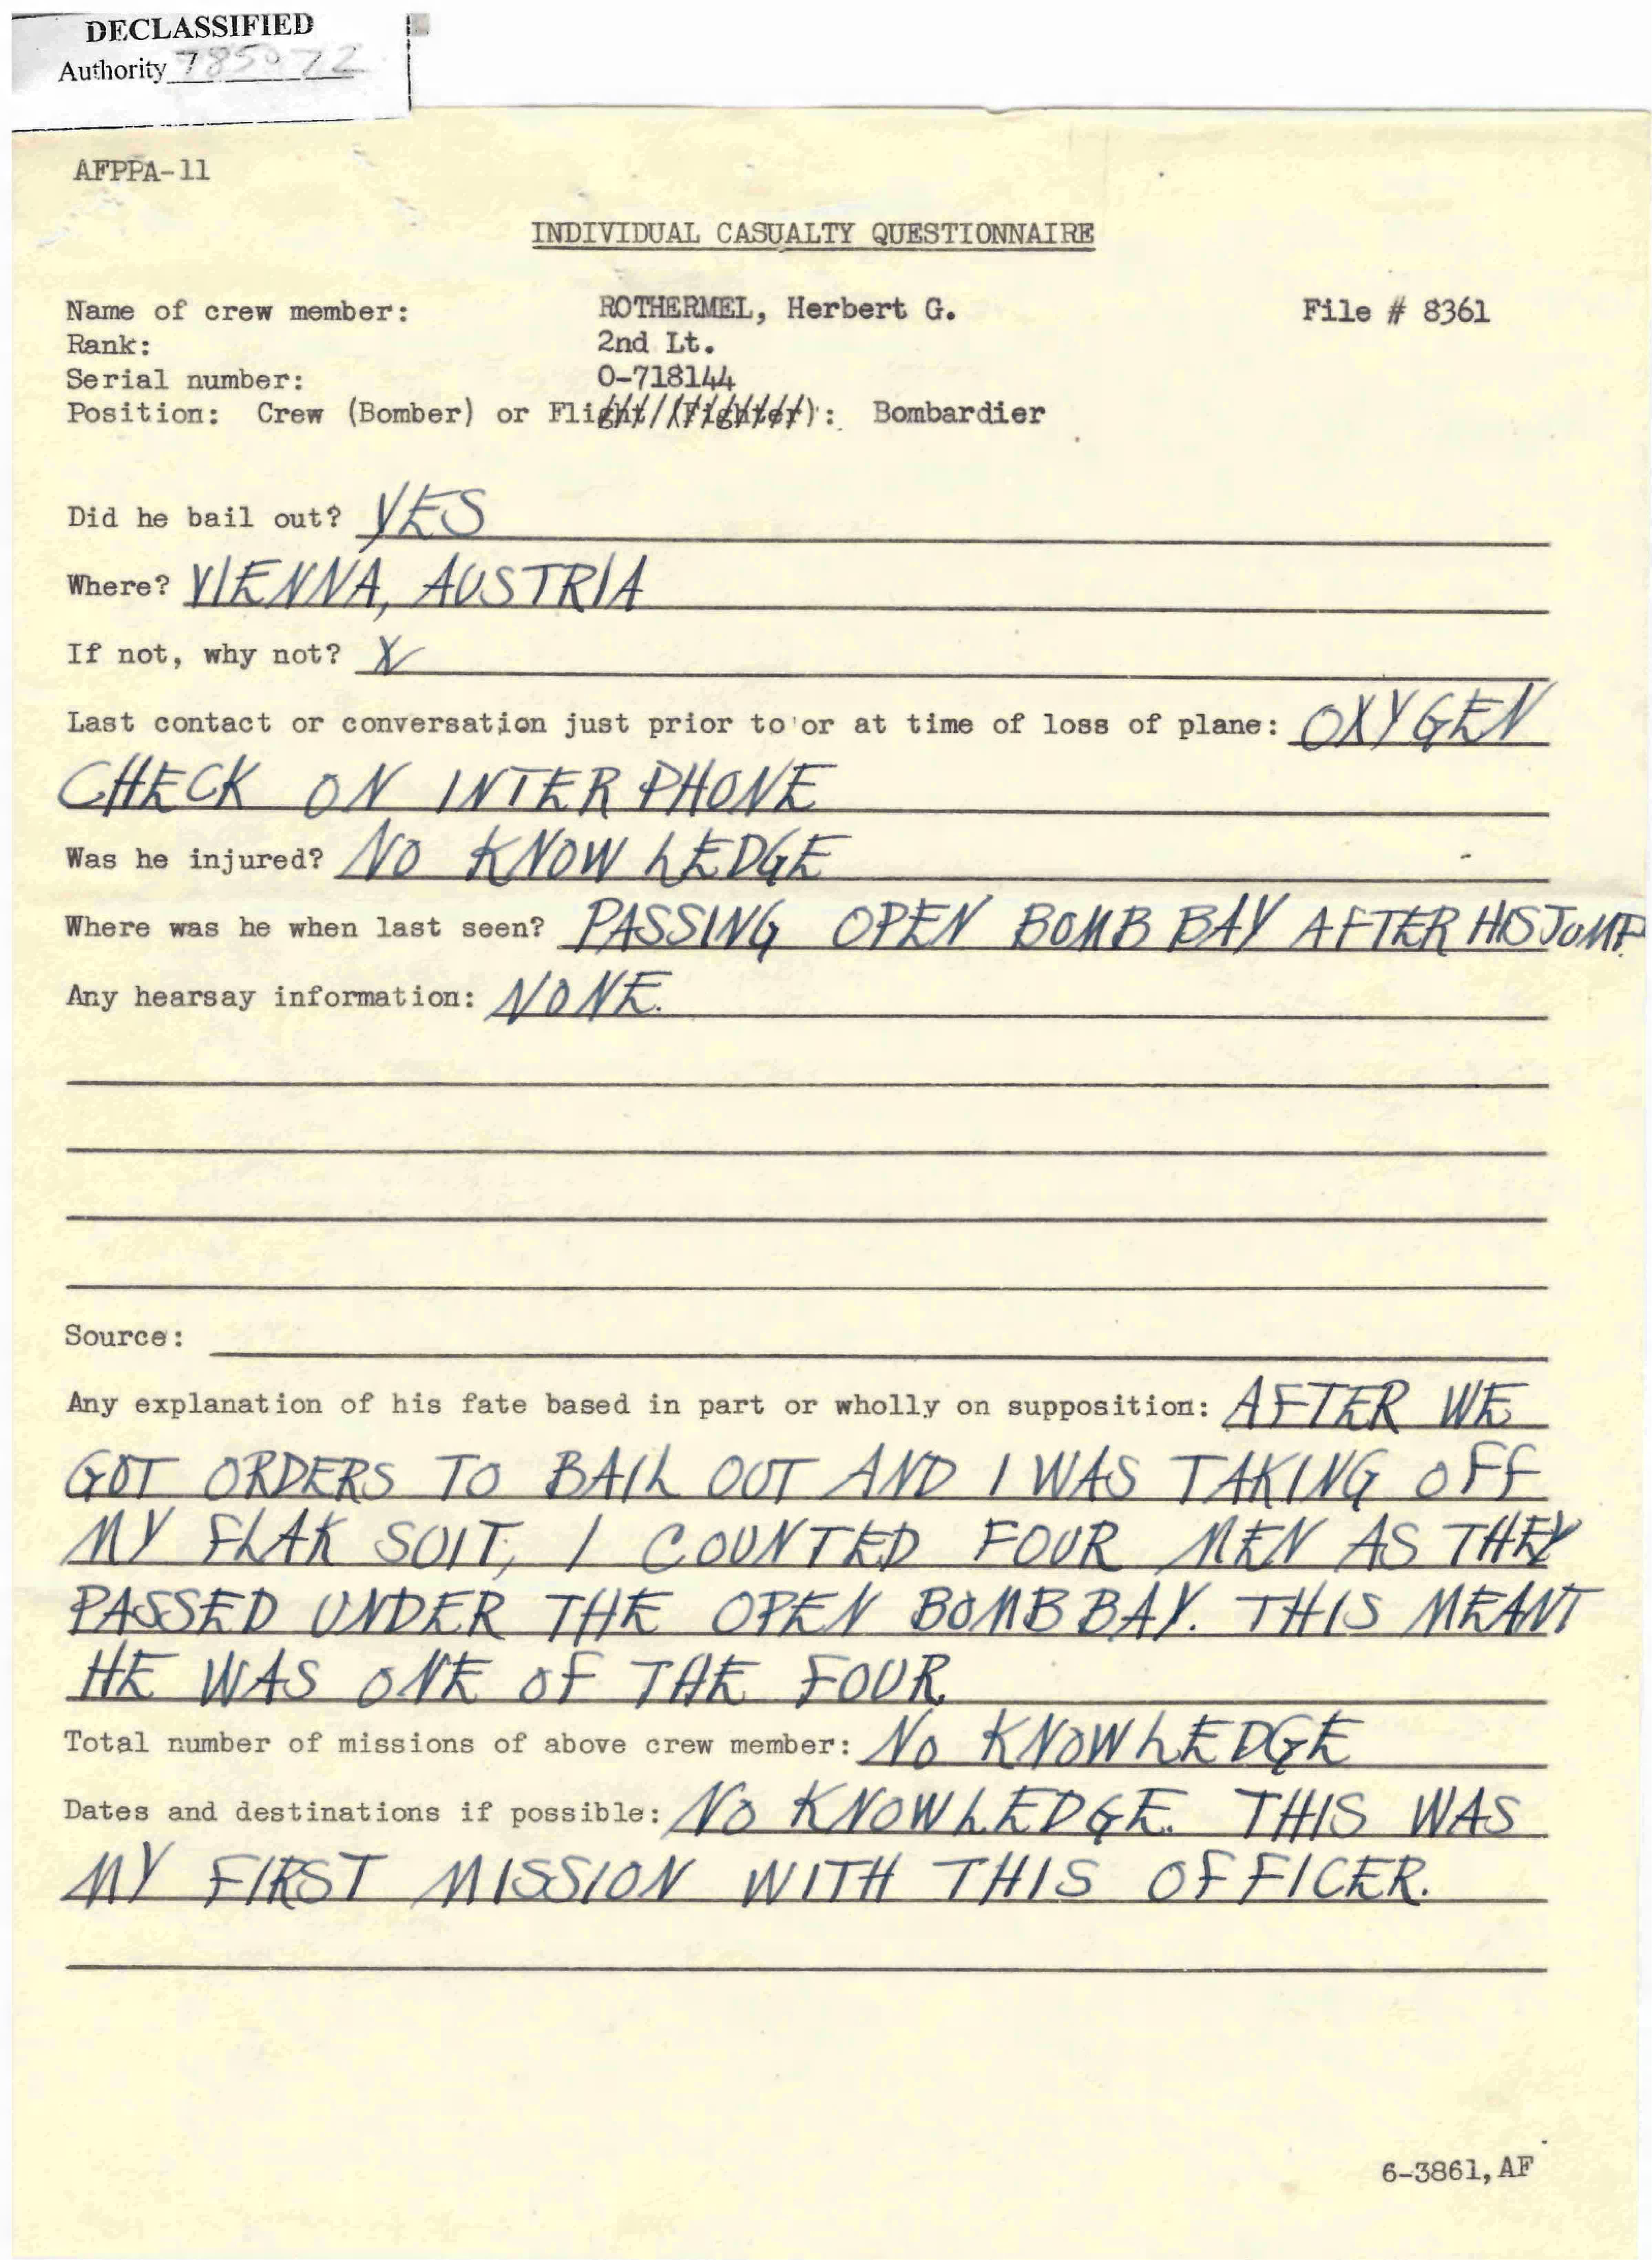 DECLASSIFIED
Authority 785072
AFPPA-11
INDIVIDUAL CASUALTY QUESTIONNAIRE
Name of crew member: ROTHERMEL, Herbert G. File # 8361
Rank: 2nd Lt.
Serial number: O-718144
Position: Crew (Bomber) or Flight/(Fighter): Bombardier
Did he bail out? YES
Where? VIENNA, AUSTRIA
If not, why not? X
Last contact or conversation just prior to or at time of loss of plane: OXYGEN
CHECK ON INTERPHONE
Was he injured? NO KNOWLEDGE
Where was he when last seen? PASSING OPEN BOMB BAY AFTER HIS JUMP.
Any hearsay information: NONE.
Source:
Any explanation of his fate based in part or wholly on supposition: AFTER WE
GOT ORDERS TO BAIL OUT AND I WAS TAKING OFF
MY FLAK SUIT, I COUNTED FOUR MEN AS THEY
PASSED UNDER THE OPEN BOMB BAY. THIS MEANT
HE WAS ONE OF THE FOUR.
Total number of missions of above crew member: NO KNOWLEDGE
Dates and destinations if possible: NO KNOWLEDGE. THIS WAS
MY FIRST MISSION WITH THIS OFFICER.
6-3861, AF